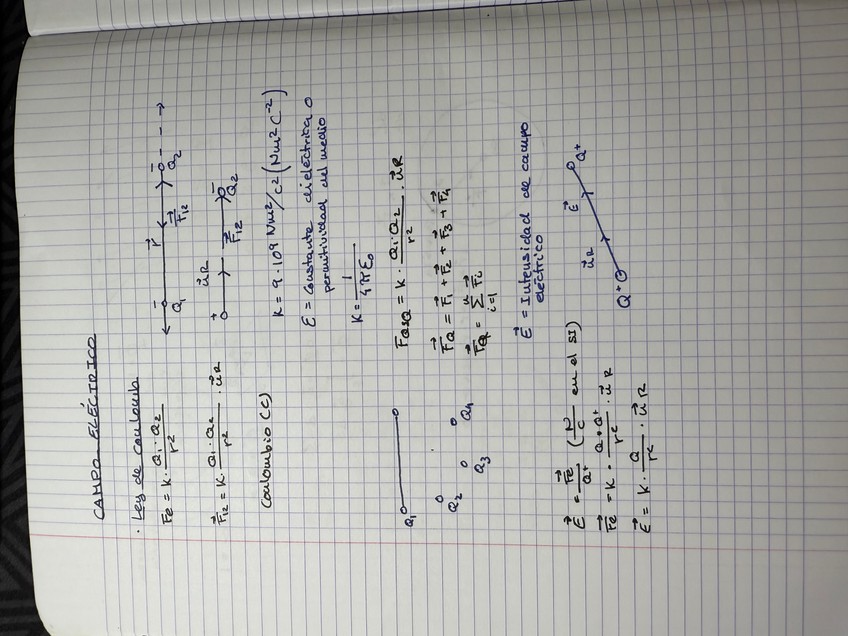 CAMPO ELÉCTRICO
· Ley de coulomb
Fe = K · Q1 · Q2 / r²
r⃗
Q1 F⃗12 Q2
F⃗12 = K · Q1 · Q2 / r² · u⃗R
u⃗R
F⃗12 Q2
Coulombio (C)
K = 9 · 10⁹ Nm²/C² (Nm² C⁻²)
ε = Constante dieléctrica o
permitividad del medio
K = 1 / 4πε0
Q1
Q2 Q3 Q4
= K · Q1 · Q2 / r² · u⃗R
F⃗Q = F⃗1 + F⃗2 + F⃗3 + F⃗4
F⃗Q = Σ F⃗i
i=1
E⃗ = Intensidad de campo
eléctrico
E⃗ = F⃗e / Q+ (N/C en el SI)
F⃗e = K · Q · Q+ / r² · u⃗R
E⃗ = K · Q / r² · u⃗R
Q+ u⃗R E⃗ Q+